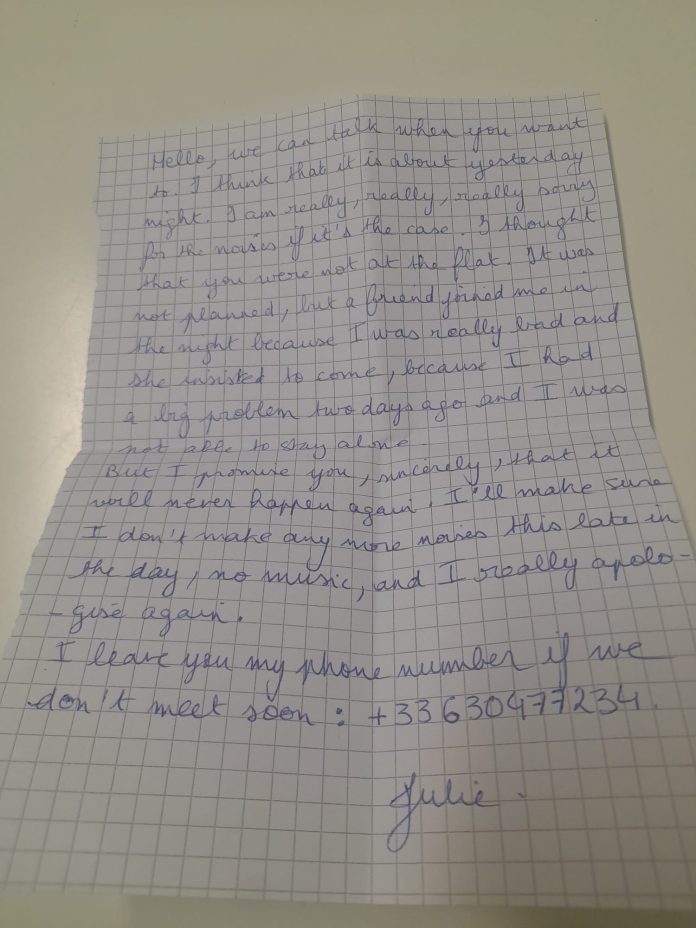 Hello, we can talk when you want
to. I think that it is about yesterday
night. I am really, really, really sorry
for the noises if it's the case. I thought
that you were not at the flat. It was
not planned, but a friend joined me in
the night because I was really bad and
she insisted to come, because I had
a big problem two days ago and I was
not able to stay alone.
But I promise you, sincerely, that it
will never happen again. I'll make sure
I don't make any more noises this late in
the day, no music, and I really apolo-
-gise again.
I leave you my phone number if we
don't meet soon : +33630477234.
Julie.